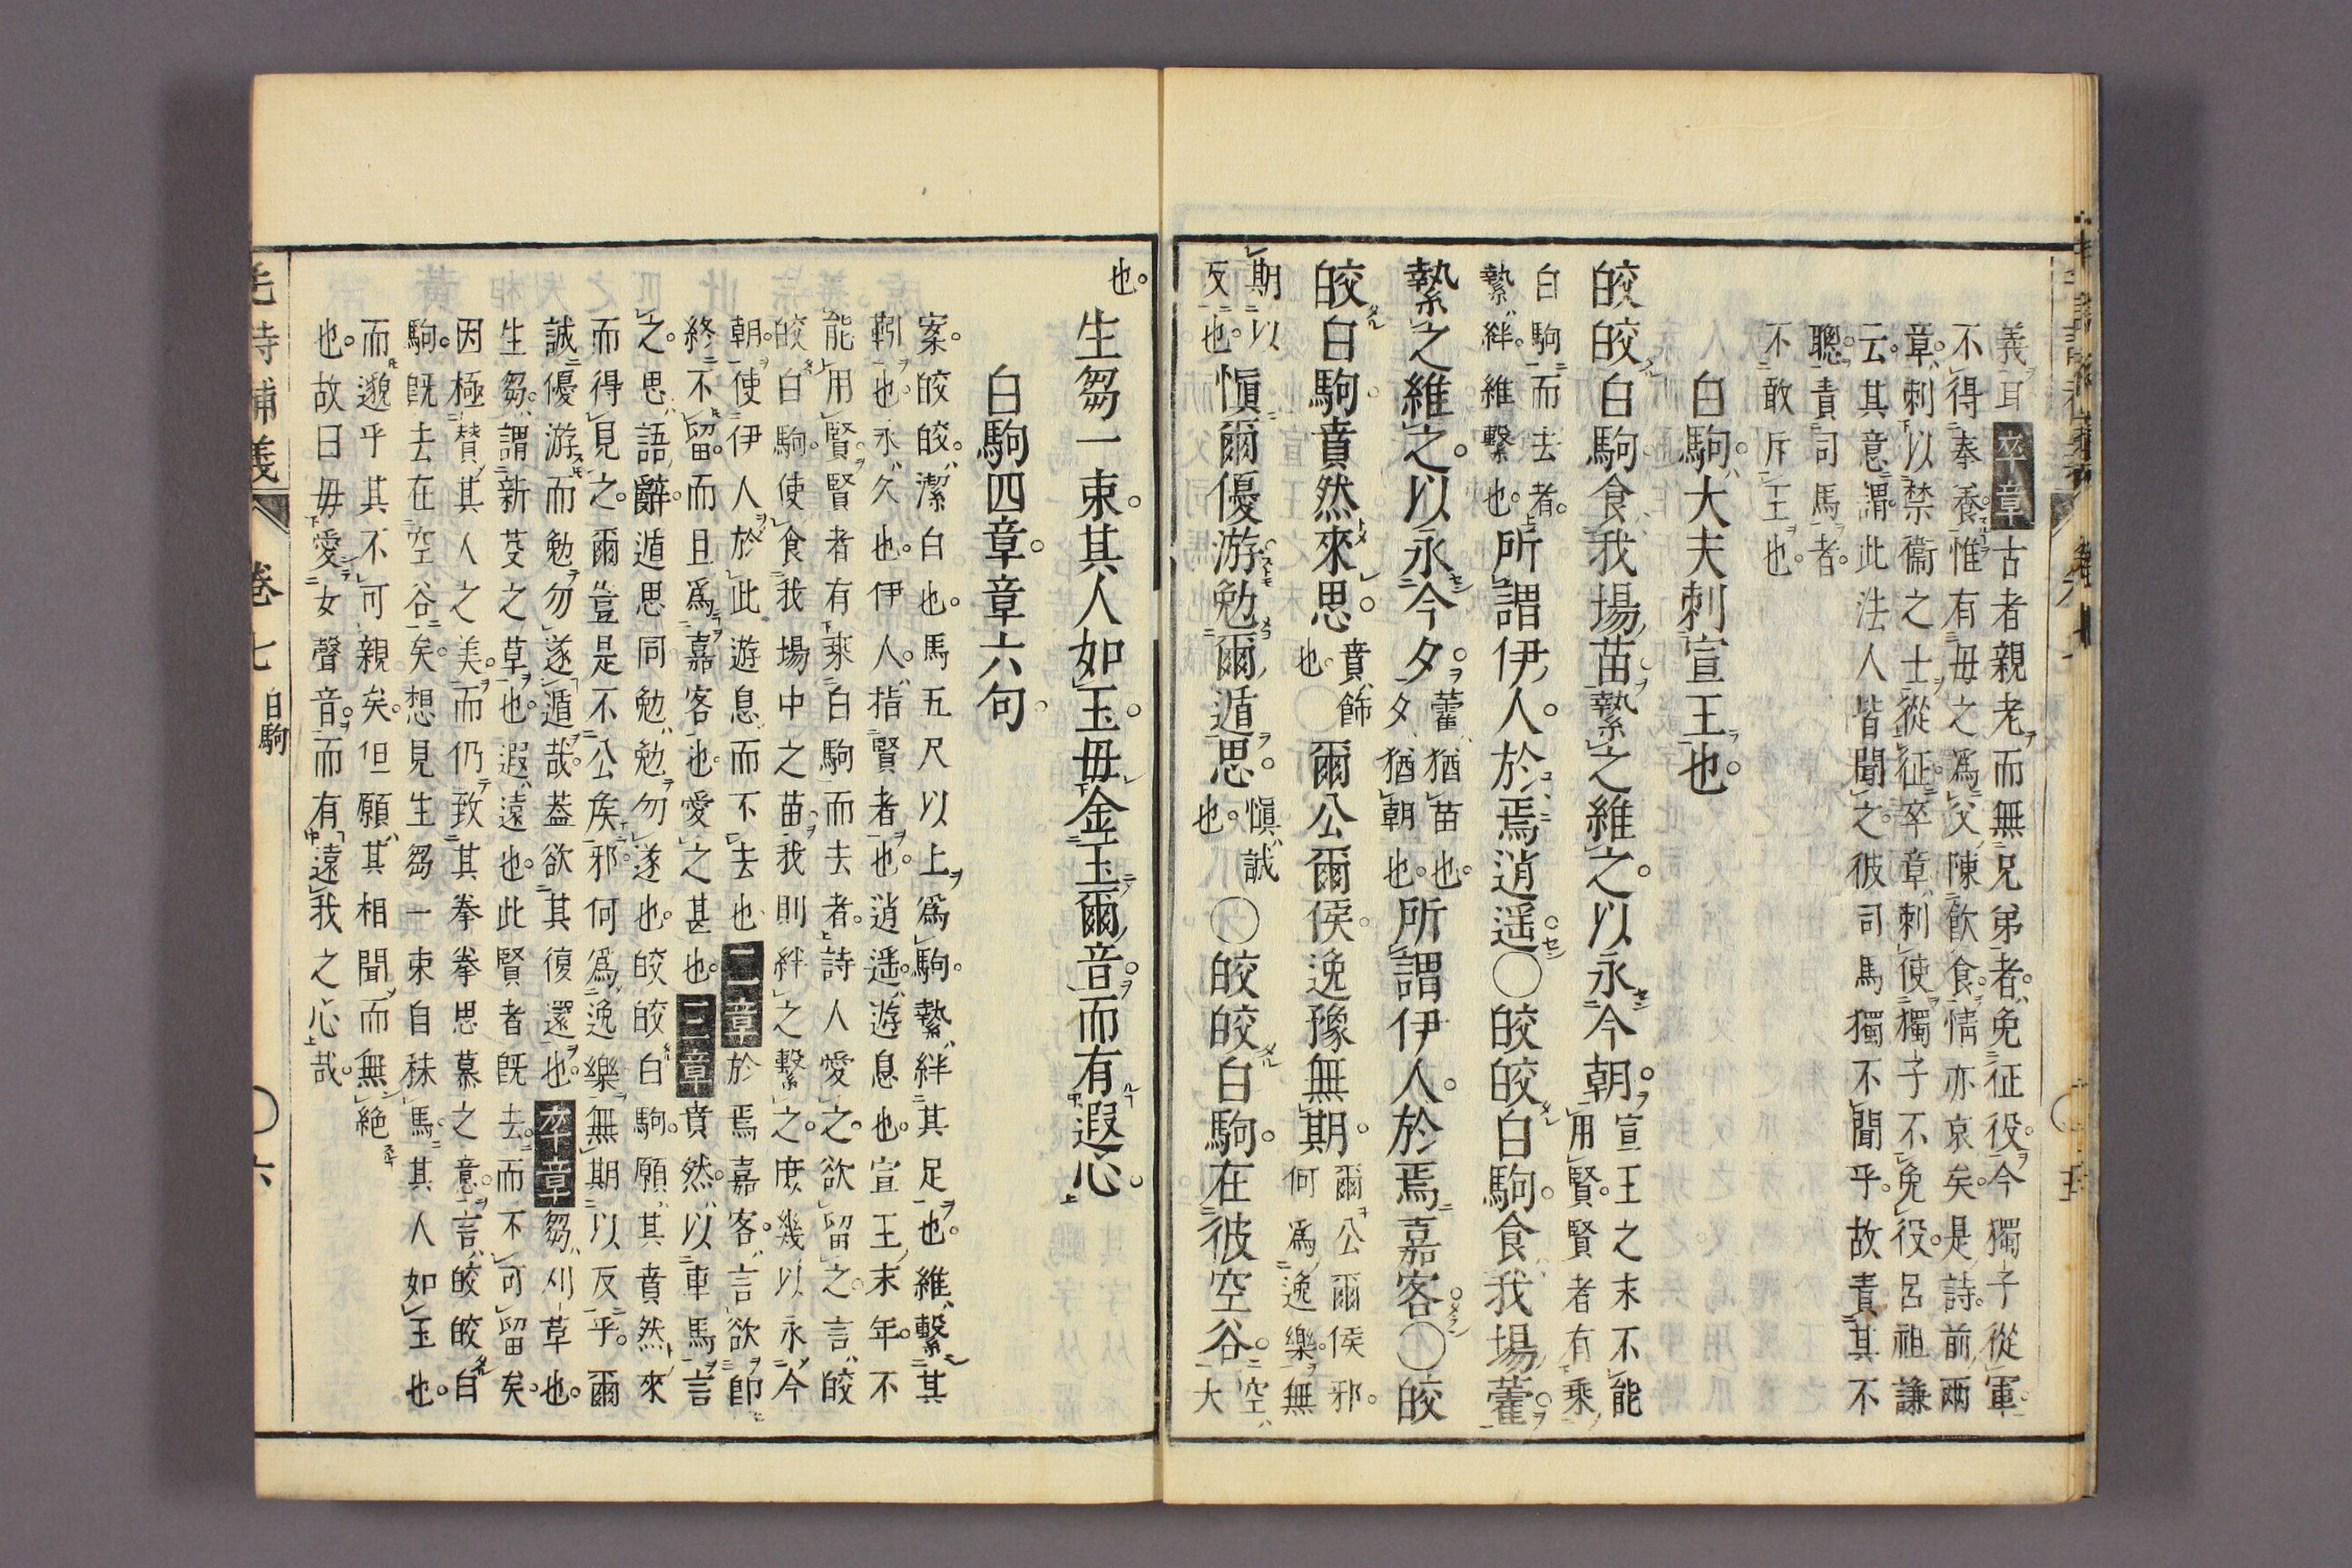 義耳卒章古者親老而無兄弟者免征役今獨子從軍
不得奉養惟有母之爲父陳飲食情亦哀矣是詩前兩
章刺以禁衞之士從征卒章刺使獨子不免役呂祖謙
云其意謂此法人皆聞之彼司馬獨不聞乎故責其不
聰責司馬者
不敢斥王也
白駒大夫刺宣王也
皎皎白駒食我場苗縶之維之以永今朝宣王之末不能
用賢賢者有乗
白駒而去者
縶絆維繫也所謂伊人於焉逍遥〇皎皎白駒食我場藿
縶之維之以永今夕藿猶苗也
夕猶朝也所謂伊人於焉嘉客〇皎
皎白駒賁然來思賁飾
也爾公爾侯逸豫無期爾公爾侯邪
何爲逸樂無
期以
反也愼爾優游勉爾遁思愼誠
也〇皎皎白駒在彼空谷空
大
也生芻一束其人如玉毋金玉爾音而有遐心
白駒四章章六句
案皎皎潔白也馬五尺以上爲駒縶絆其足也維繫其
靷也永久也伊人指賢者也逍遥遊息也宣王末年不
能用賢賢者有乗白駒而去者詩人愛之欲留之言皎
皎白駒使食我場中之苗我則絆之繫之庶幾以永今
朝使伊人於此遊息而不去也二章於焉嘉客言欲卽
終不留而且爲嘉客也愛之甚也三章賁然以車馬言
之思語辭遁思同勉勉勿遂也皎皎白駒願其賁然來
而得見之爾豈是不公矦邪何爲逸樂無期以反乎爾
誠優游而勉勿遂遁哉蓋欲其復還也卒章芻刈草也
生芻謂新茭之草也遐遠也此賢者旣去而不可留矣
因極賛其人之美而仍致其拳拳思慕之意言皎皎白
駒旣去在空谷矣想見生芻一束自秣馬其人如玉也
而邈乎其不可親矣但願其相聞而無絕
也故曰毋愛女聲音而有遠我之心哉
毛詩補義 卷七 白駒 〇六